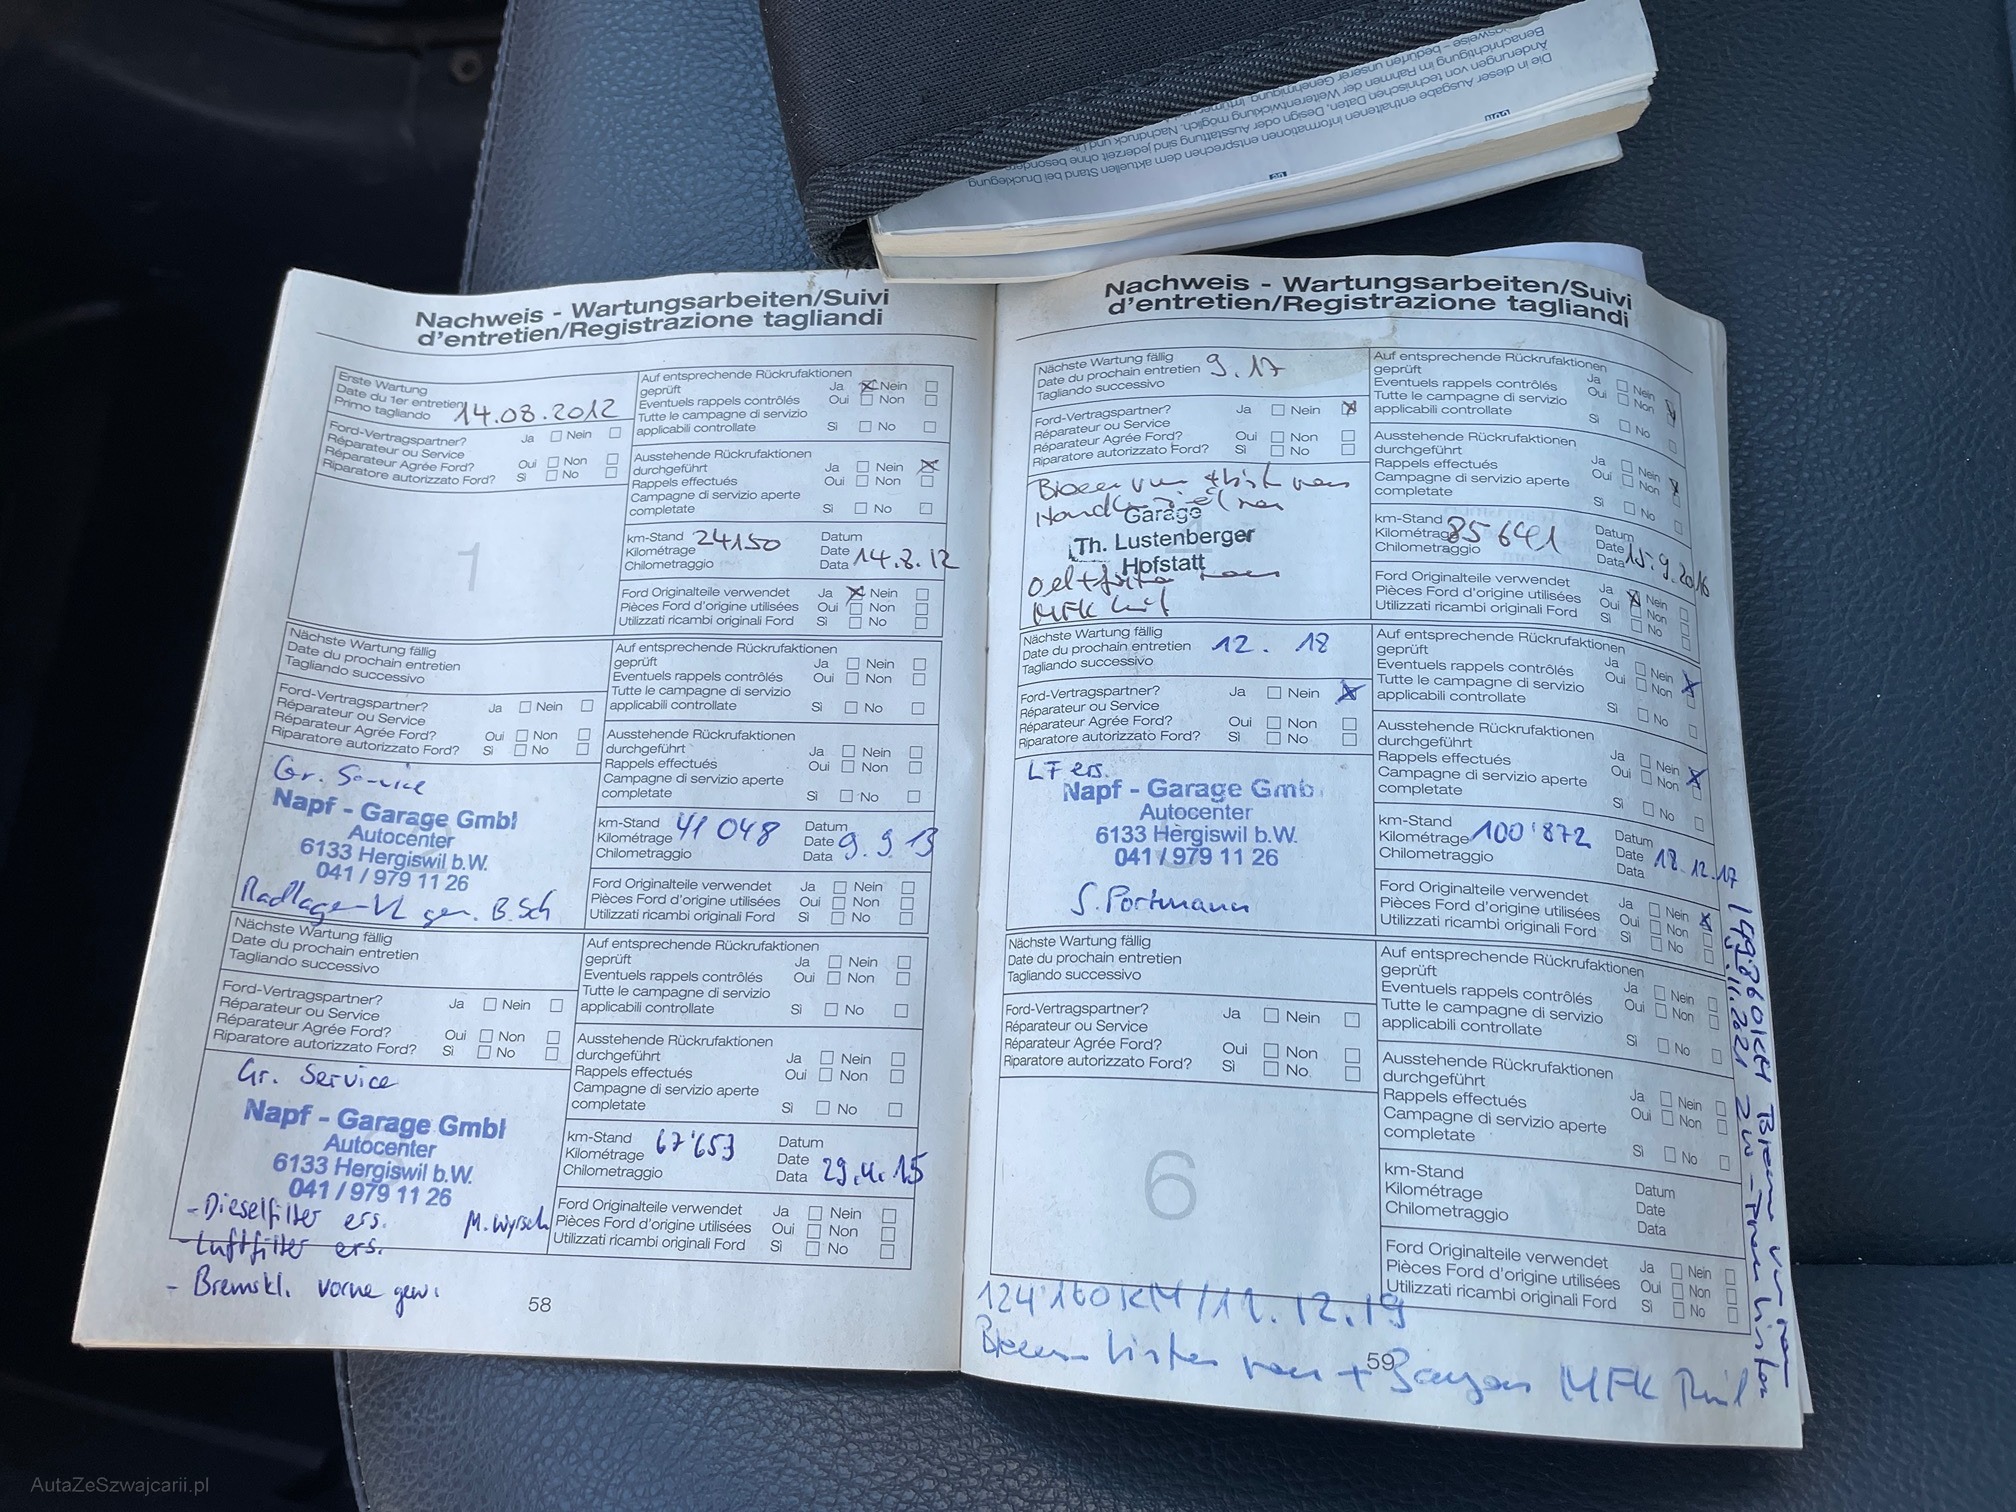 Die in dieser Ausgabe enthaltenen Informationen entsprechen dem aktuellen Stand bei Drucklegung
Änderungen von technischen Daten, Design oder Ausstattung sind jederzeit ohne
im Rahmen der Weiterentwicklung möglich. Nachdruck
bedürfen unserer
Nachweis - Wartungsarbeiten/Suivi
d'entretien/Registrazione tagliandi
Erste Wartung
Date du 1er entretien
Primo tagliando 14.08.2012
Ford-Vertragspartner? Ja Nein
Réparateur ou Service
Réparateur Agrée Ford? Oui Non
Riparatore autorizzato Ford? Sì No
1
Auf entsprechende Rückrufaktionen
geprüft Ja Nein
Eventuels rappels contrôlés Oui Non
Tutte le campagne di servizio
applicabili controllate Sì No
Ausstehende Rückrufaktionen
durchgeführt Ja Nein
Rappels effectués Oui Non
Campagne di servizio aperte
completate Sì No
km-Stand 24150 Datum
Kilométrage Date 14.8.12
Chilometraggio Data
Ford Originalteile verwendet Ja Nein
Pièces Ford d'origine utilisées Oui Non
Utilizzati ricambi originali Ford Sì No
Nächste Wartung fällig
Date du prochain entretien
Tagliando successivo
Ford-Vertragspartner? Ja Nein
Réparateur ou Service
Réparateur Agrée Ford? Oui Non
Riparatore autorizzato Ford? Sì No
Gr. Service
Napf - Garage Gmbl
Autocenter
6133 Hergiswil b.W.
041 / 979 11 26
Radlager VL gen. B.Sch
Auf entsprechende Rückrufaktionen
geprüft Ja Nein
Eventuels rappels contrôlés Oui Non
Tutte le campagne di servizio
applicabili controllate Sì No
Ausstehende Rückrufaktionen
durchgeführt Ja Nein
Rappels effectués Oui Non
Campagne di servizio aperte
completate Sì No
km-Stand 41 048 Datum
Kilométrage Date 9.9.13
Chilometraggio Data
Ford Originalteile verwendet Ja Nein
Pièces Ford d'origine utilisées Oui Non
Utilizzati ricambi originali Ford Sì No
Nächste Wartung fällig
Date du prochain entretien
Tagliando successivo
Ford-Vertragspartner? Ja Nein
Réparateur ou Service
Réparateur Agrée Ford? Oui Non
Riparatore autorizzato Ford? Sì No
Gr. Service
Napf - Garage Gmbl
Autocenter
6133 Hergiswil b.W.
041 / 979 11 26
- Dieselfilter ers. M. Wyrsch
- Luftfilter ers.
- Bremskl. vorne gew.
Auf entsprechende Rückrufaktionen
geprüft Ja Nein
Eventuels rappels contrôlés Oui Non
Tutte le campagne di servizio
applicabili controllate Sì No
Ausstehende Rückrufaktionen
durchgeführt Ja Nein
Rappels effectués Oui Non
Campagne di servizio aperte
completate Sì No
km-Stand 67'653 Datum
Kilométrage Date
Chilometraggio Data
Ford Originalteile verwendet Ja Nein
Pièces Ford d'origine utilisées Oui Non
Utilizzati ricambi originali Ford Sì No
58
Nachweis - Wartungsarbeiten/Suivi
d'entretien/Registrazione tagliandi
Nächste Wartung fällig 9.17
Date du prochain entretien
Tagliando successivo
Ford-Vertragspartner? Ja Nein
Réparateur ou Service
Réparateur Agrée Ford? Oui Non
Riparatore autorizzato Ford? Sì No
Garage
Th. Lustenberger
Hofstatt
MFK
Auf entsprechende Rückrufaktionen
geprüft Ja Nein
Eventuels rappels contrôlés Oui Non
Tutte le campagne di servizio
applicabili controllate Sì No
Ausstehende Rückrufaktionen
durchgeführt Ja Nein
Rappels effectués Oui Non
Campagne di servizio aperte
completate Sì No
km-Stand 85641 Datum
Kilométrage Date 15.9.2016
Chilometraggio Data
Ford Originalteile verwendet Ja Nein
Pièces Ford d'origine utilisées Oui Non
Utilizzati ricambi originali Ford Sì No
Nächste Wartung fällig
Date du prochain entretien 12. 18
Tagliando successivo
Ford-Vertragspartner? Ja Nein
Réparateur ou Service
Réparateur Agrée Ford? Oui Non
Riparatore autorizzato Ford? Sì No
LF ers.
Napf - Garage Gmb
Autocenter
6133 Hergiswil b.W.
041 / 979 11 26
S. Portmann
Auf entsprechende Rückrufaktionen
geprüft Ja Nein
Eventuels rappels contrôlés Oui Non
Tutte le campagne di servizio
applicabili controllate Sì No
Ausstehende Rückrufaktionen
durchgeführt Ja Nein
Rappels effectués Oui Non
Campagne di servizio aperte
completate Sì No
km-Stand 100'872 Datum
Kilométrage Date 18.12.17
Chilometraggio Data
Ford Originalteile verwendet Ja Nein
Pièces Ford d'origine utilisées Oui Non
Utilizzati ricambi originali Ford Sì No
Nächste Wartung fällig
Date du prochain entretien
Tagliando successivo
Ford-Vertragspartner? Ja Nein
Réparateur ou Service
Réparateur Agrée Ford? Oui Non
Riparatore autorizzato Ford? Sì No.
6
Auf entsprechende Rückrufaktionen
geprüft Ja Nein
Eventuels rappels contrôlés Oui Non
Tutte le campagne di servizio
applicabili controllate Sì No
Ausstehende Rückrufaktionen
durchgeführt Ja Nein
Rappels effectués Oui Non
Campagne di servizio aperte
completate Sì No
km-Stand Datum
Kilométrage Date
Chilometraggio Data
Ford Originalteile verwendet Ja Nein
Pièces Ford d'origine utilisées Oui Non
Utilizzati ricambi originali Ford Sì No
124'160 KM / 11.12.19
MFK
59
AutaZeSzwajcarii.pl